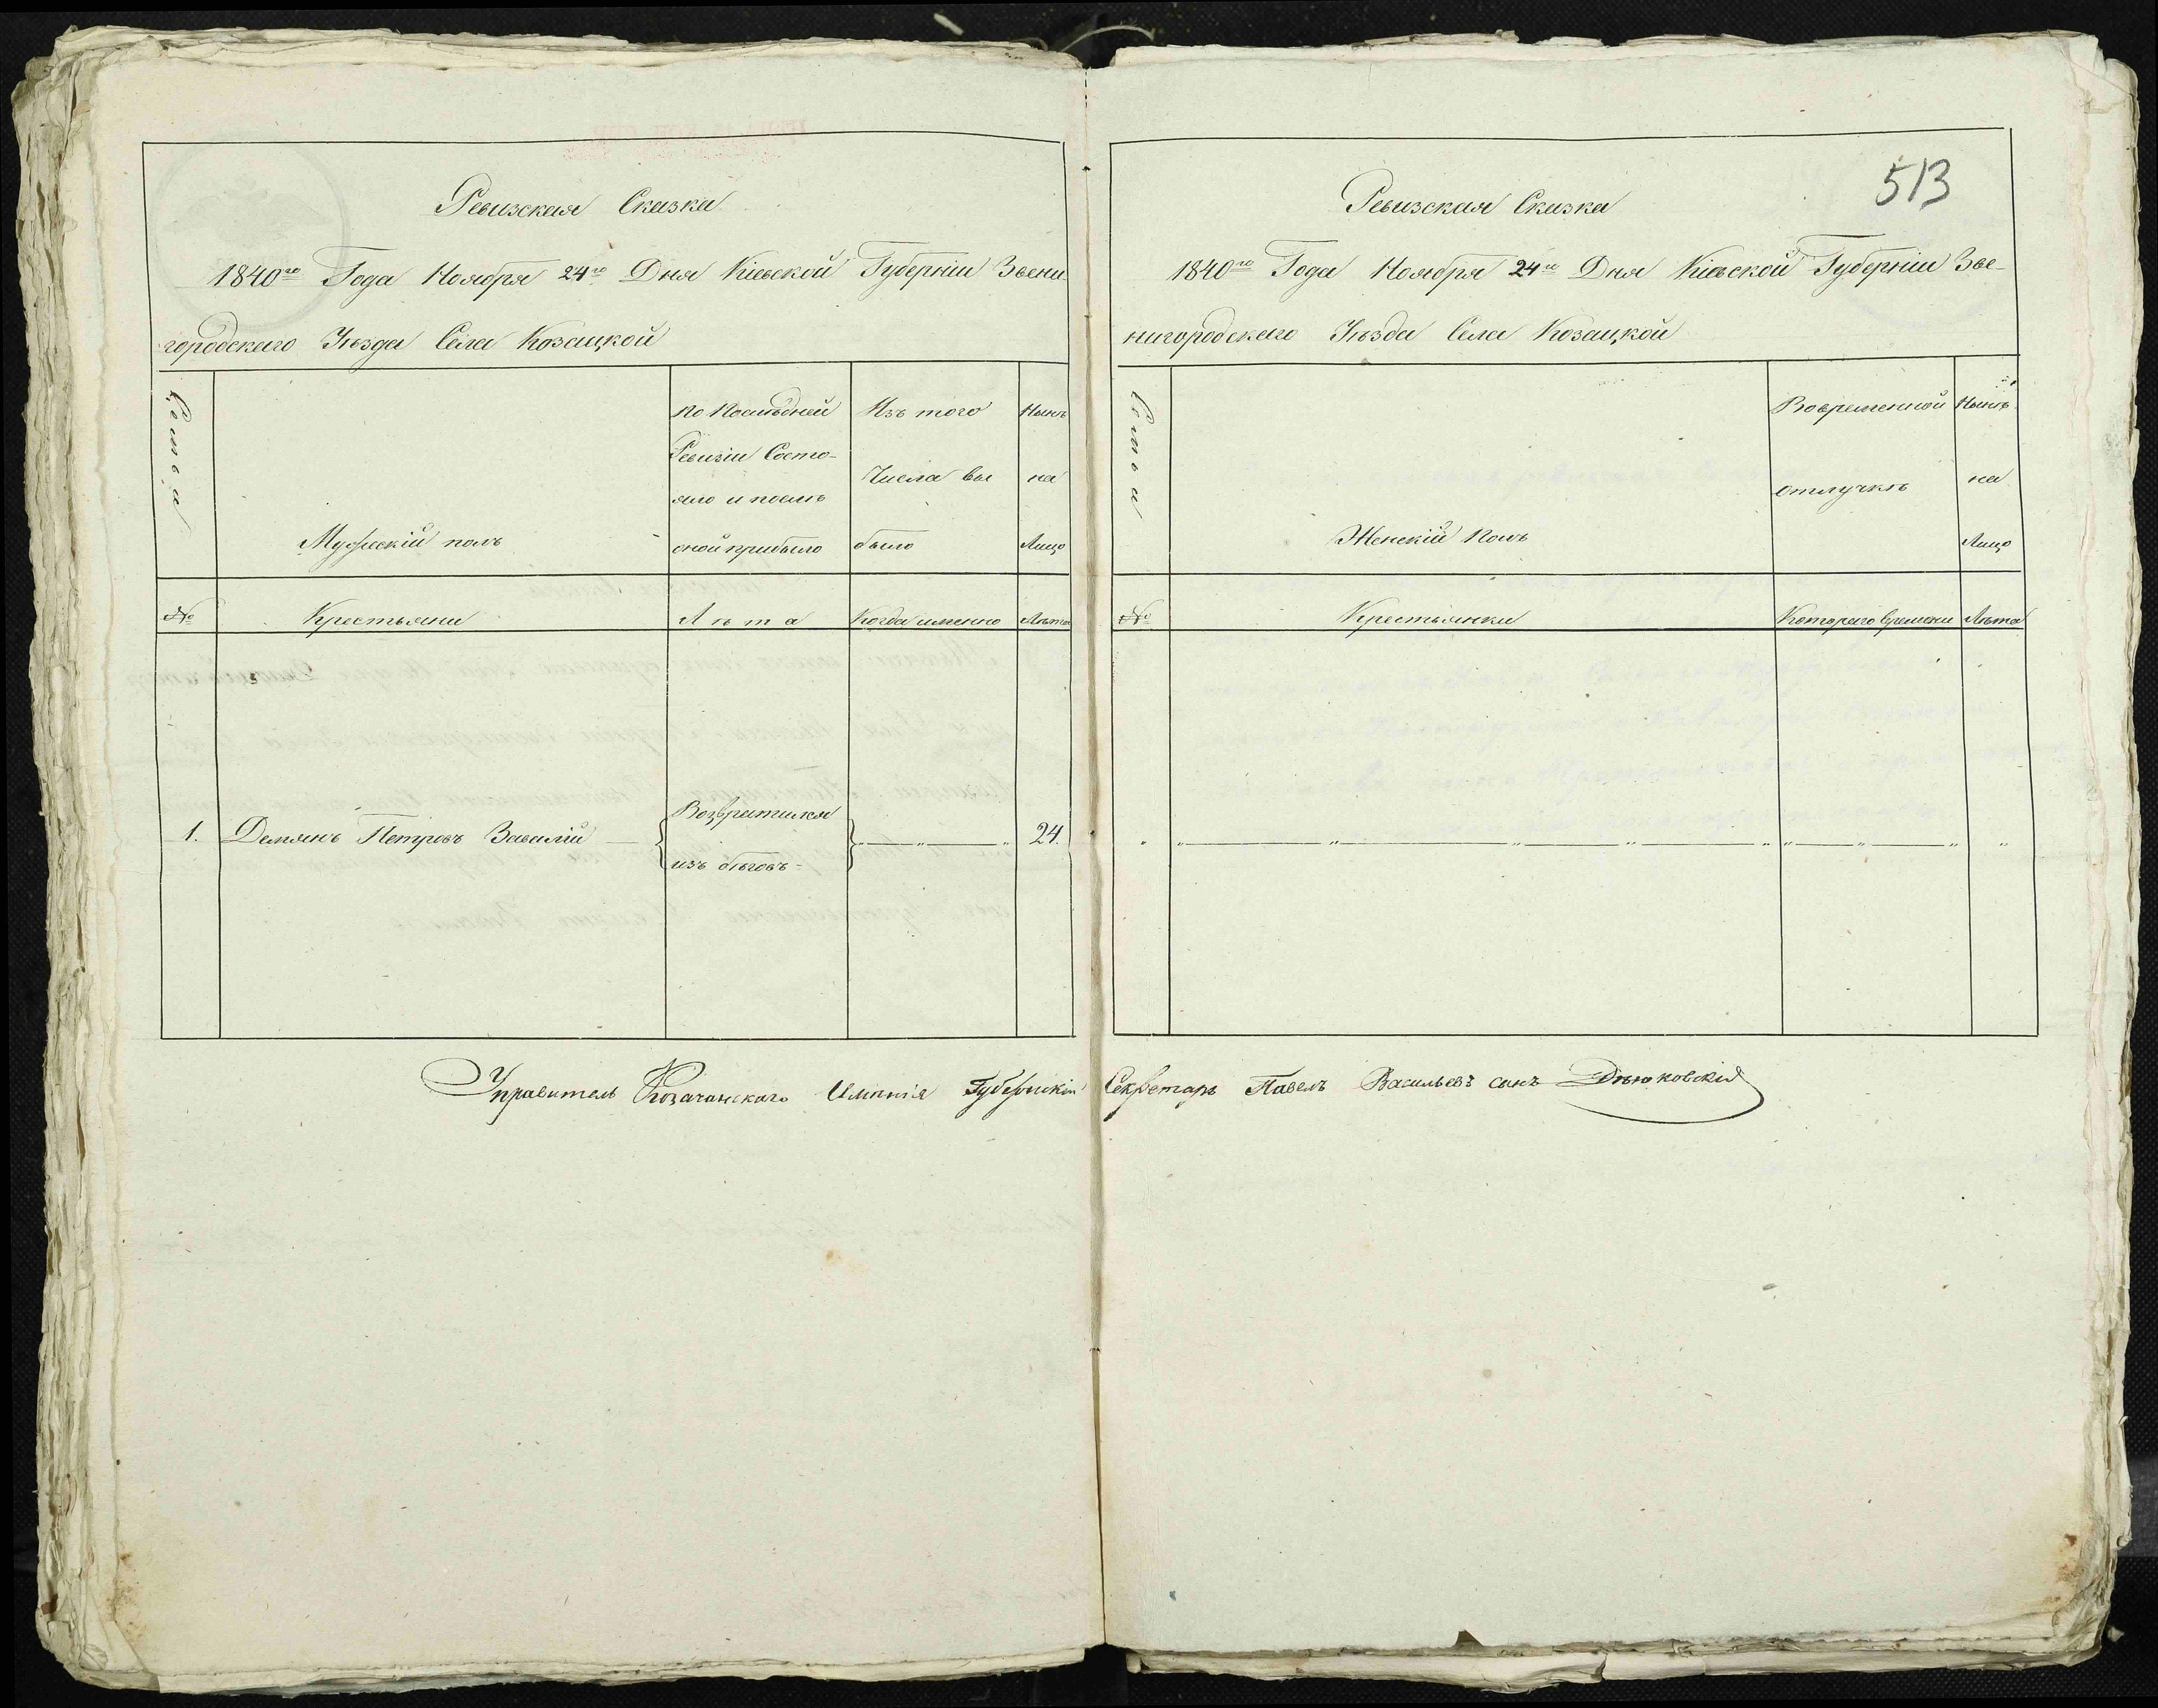 Ревизская Сказка
1840го Года Ноября 24го Дня Кіевской Губерніи Звени
городскаго Уѣзда Села Козацкой
Семьа
Мужескій полъ
по Последней
Ревизіи Состо-
яло и послѣ
оной прибыло
Изъ того
Числа вы
было
Нынѣ
на
Лицо
№
Крестьяни
Лѣта
Когда именно
Лѣта
1. Демянъ Петровъ Завилій
Возвратился
изъ бѣговъ
24.
513
Ревизская Сказка
1840го Года Ноября 24го Дня Кіевской Губерніи Зве-
нигородскаго Уѣзда Села Козацкой
Семьа
Женскій Полъ
Во временной
отлучкѣ
Нынѣ
на
Лицо
№
Крестьянки
Котораго времени
Лѣта
Управитель Козачанскаго Имѣнія Губернскій Секретарь Павелъ Васильевъ сынъ